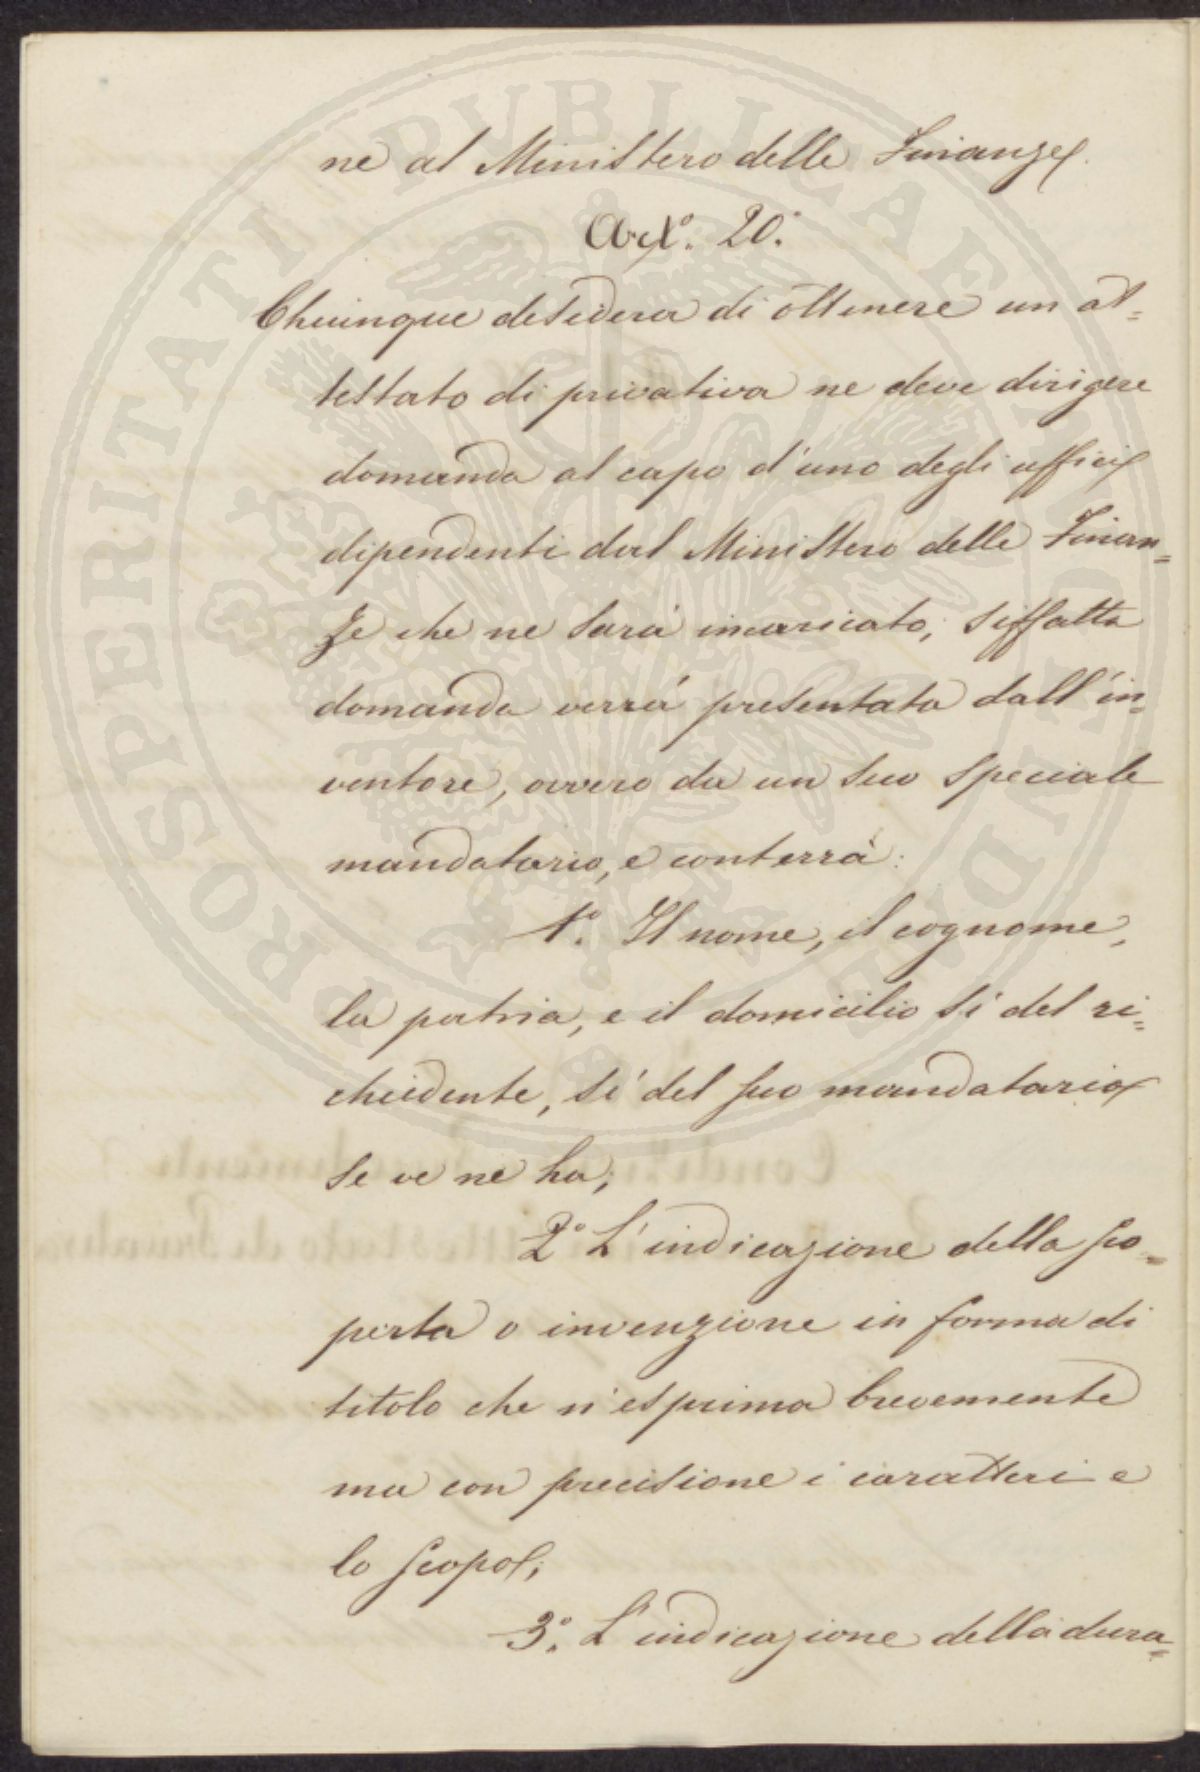 ne al Ministero delle Finanze.
Art.º 20.º
Chiunque desidera di ottenere un at=
testato di privativa ne deve dirigere
domanda al capo d'uno degli uffici
dipendenti dal Ministero delle Finan=
ze che ne sarà incaricato; siffatta
domanda verrà presentata dall'in=
ventore, ovvero da un suo speciale
mandatario, e conterrà:
1.º Il nome, il cognome,
la patria, e il domicilio sì del ri=
chiedente, sì del suo mandatario
se ve ne ha;
2.º L'indicazione della sco=
perta o invenzione in forma di
titolo che n'esprima brevemente
ma con precisione i caratteri e
lo scopo;
3.º L'indicazione della dura=
PROSPERITATI PUBLICAE AUGENDAE